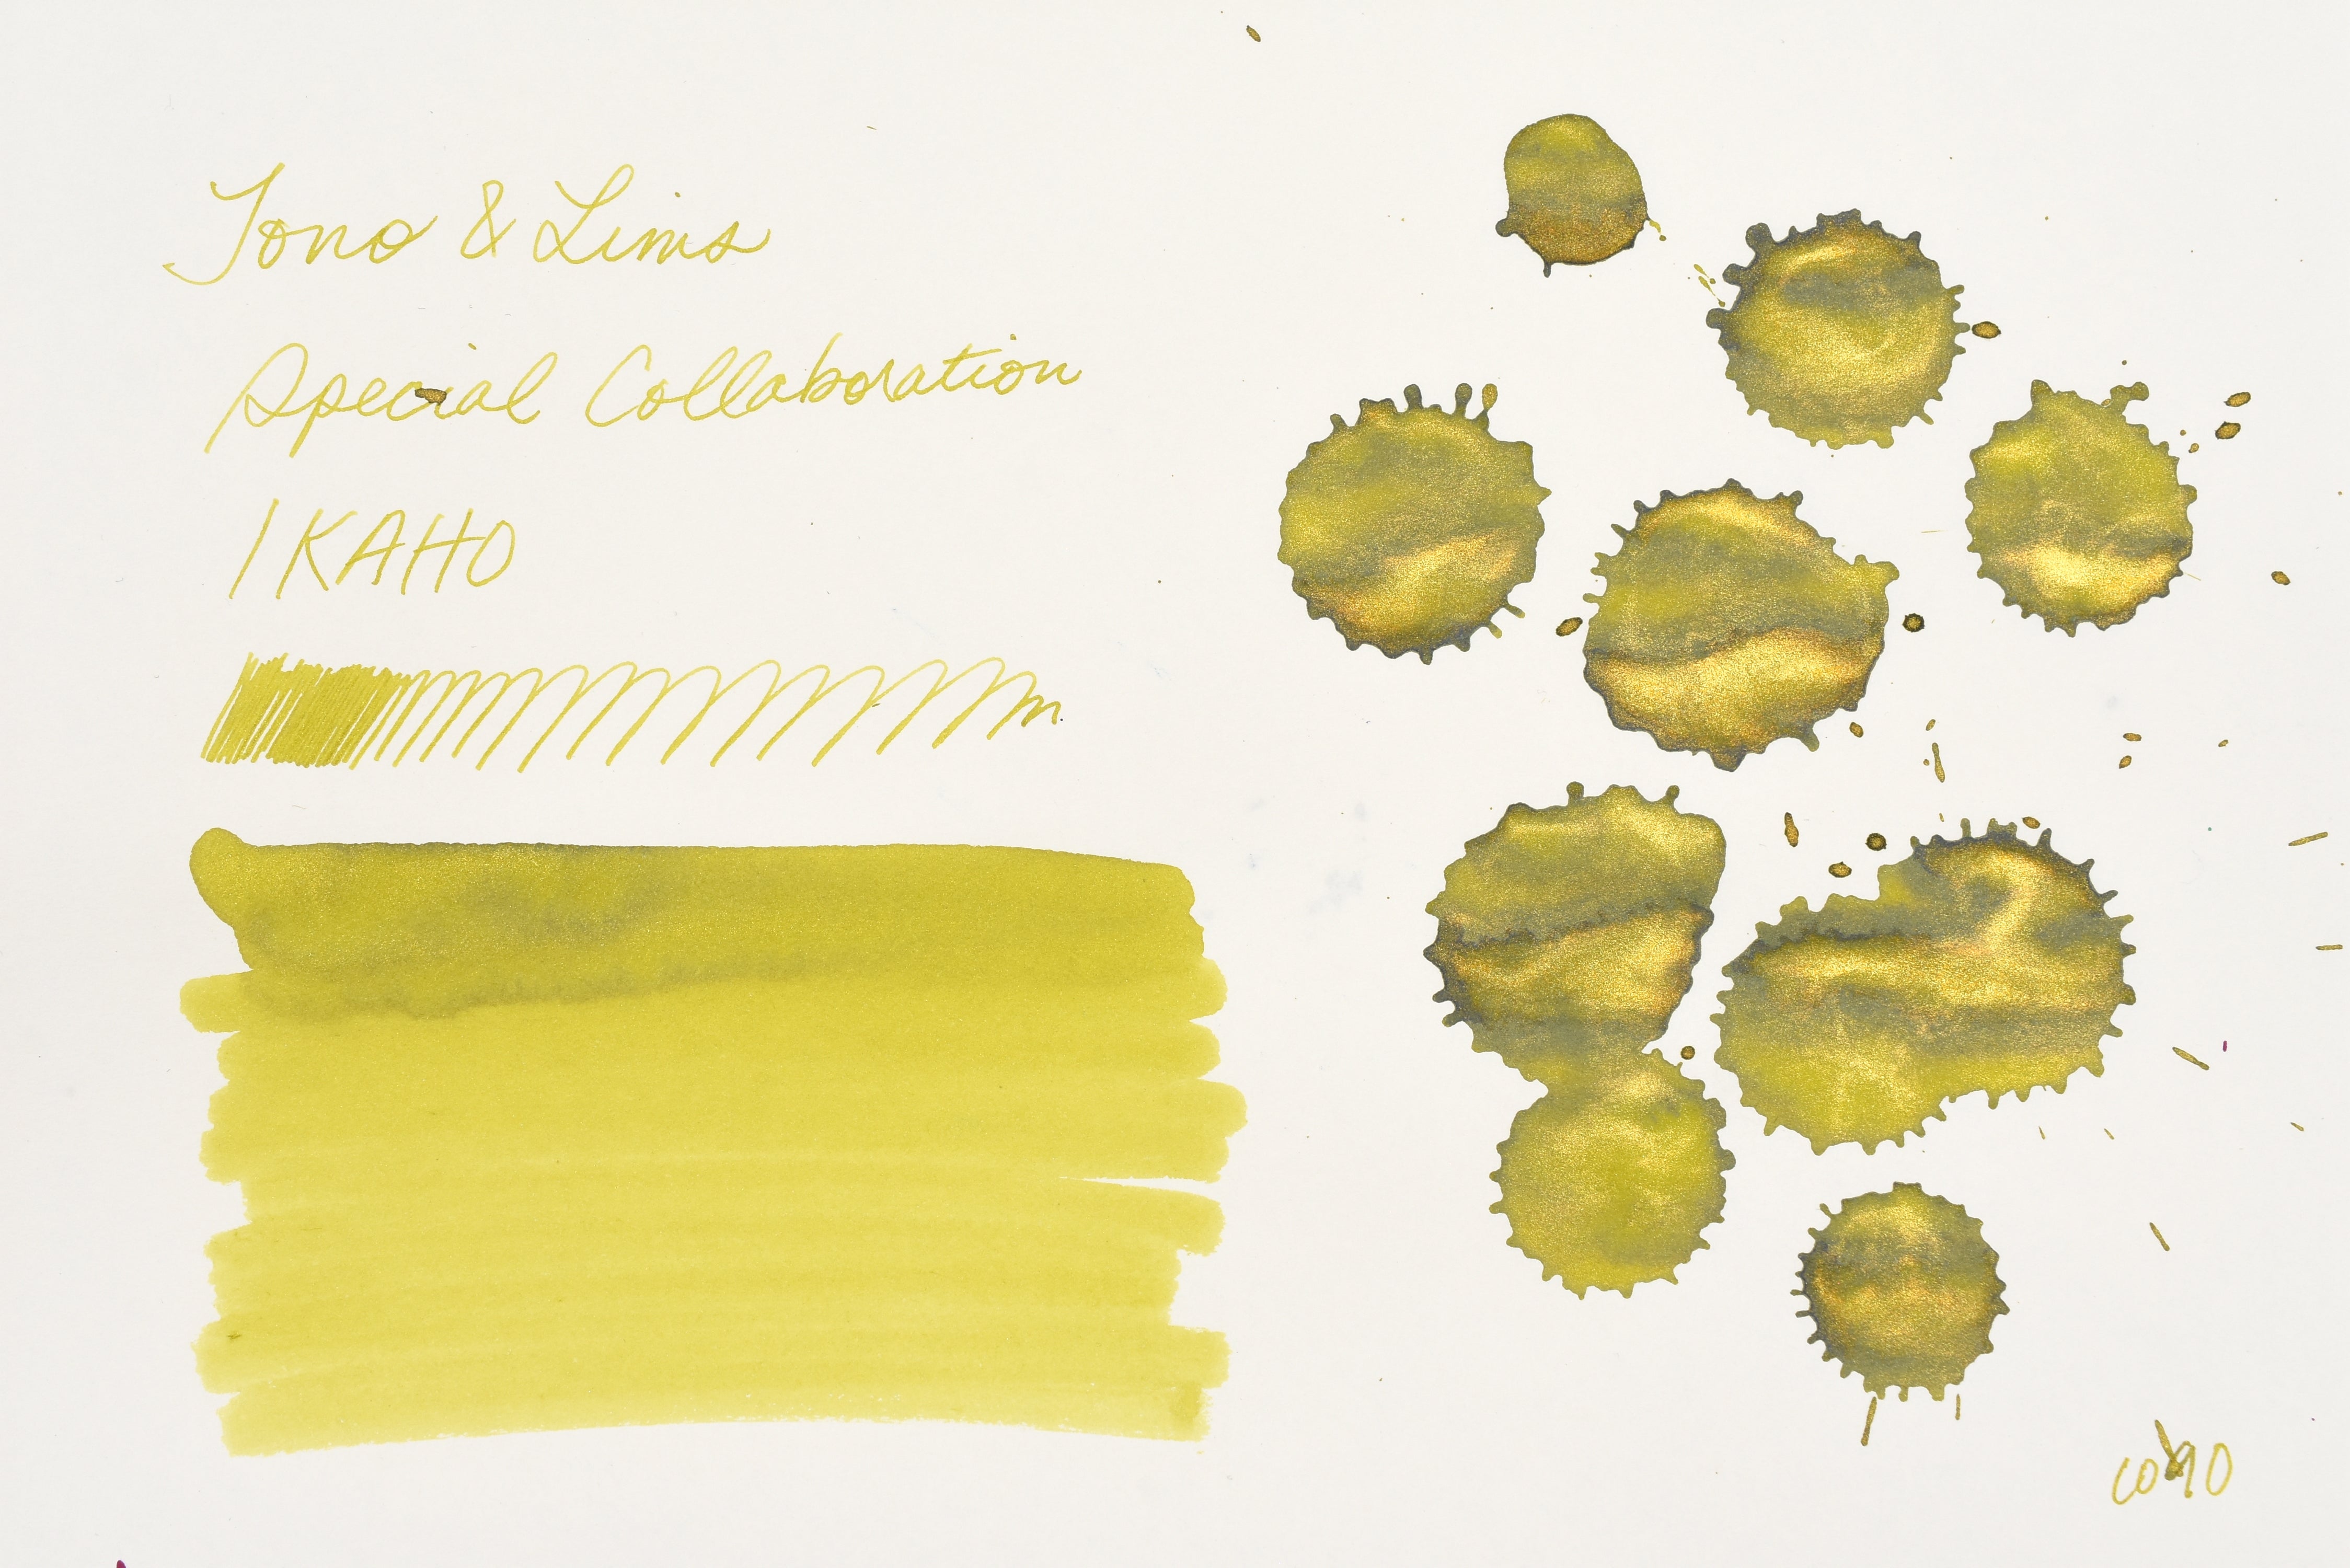 Tono & Lims
Special Collaboration
IKAHO